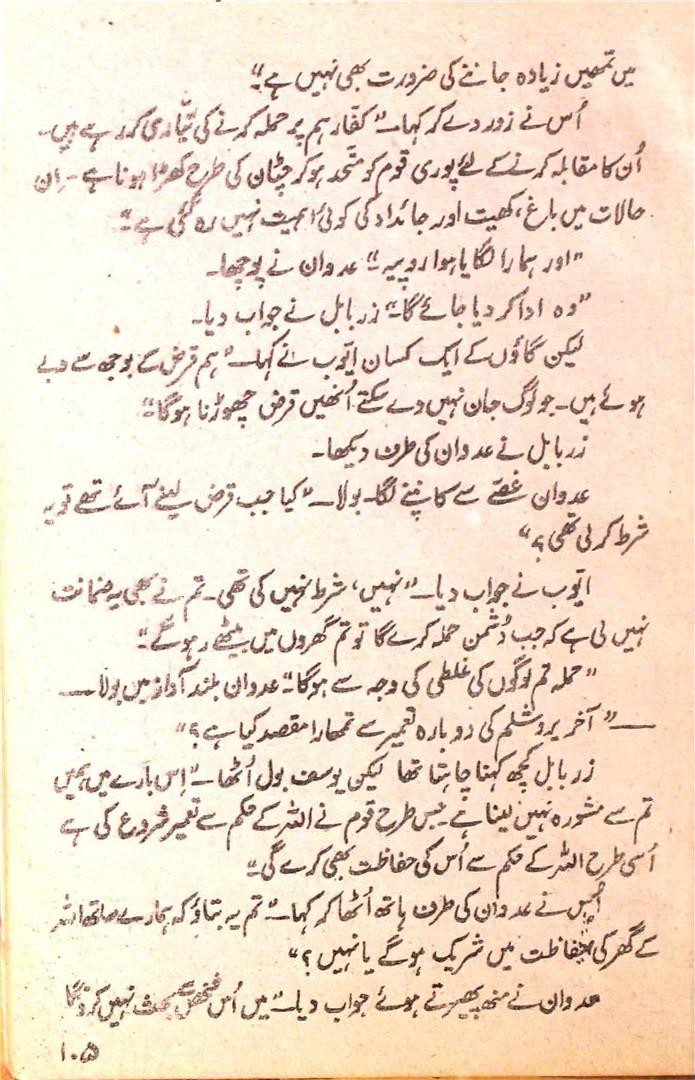 میں تمھیں زیادہ جاننے کی ضرورت بھی نہیں ہے۔"
اُس نے زور دے کر کہا۔ "کفّار ہم پر حملہ کرنے کی تیّاری کر رہے ہیں۔
اُن کا مقابلہ کرنے کے لئے پوری قوم کو متّحد ہو کر چٹان کی طرح کھڑا ہونا ہے۔ اِن
حالات میں باغ، کھیت اور جائداد کی کوئی اہمیت نہیں رہ گئی ہے۔"
"اور ہمارا لگایا ہوا روپیہ۔" عدوان نے پوچھا۔
"وہ ادا کر دیا جائے گا۔" زربابل نے جواب دیا۔
لیکن گاؤں کے ایک کسان ایّوب نے کہا۔ "ہم قرض کے بوجھ سے دبے
ہوئے ہیں۔ جو لوگ جان نہیں دے سکتے اُنھیں قرض چھوڑنا ہوگا۔"
زربابل نے عدوان کی طرف دیکھا۔
عدوان غصّے سے کانپنے لگا۔ بولا۔ "کیا جب قرض لینے آئے تھے تو یہ
شرط کر لی تھی؟"
ایّوب نے جواب دیا۔ "نہیں، شرط نہیں کی تھی۔ تم نے بھی یہ ضمانت
نہیں لی ہے کہ جب دُشمن حملہ کرے گا تو تم گھروں میں بیٹھے رہو گے۔"
"حملہ تم لوگوں کی غلطی کی وجہ سے ہوگا۔" عدوان بلند آواز میں بولا۔
— "آخر یروشلم کی دوبارہ تعمیر سے تمھارا مقصد کیا ہے؟"
زربابل کچھ کہنا چاہتا تھا لیکن یوسف بول اُٹھا۔ "اِس بارے میں ہمیں
تم سے مشورہ نہیں لینا ہے۔ جس طرح قوم نے اللہ کے حکم سے تعمیر شروع کی ہے
اُسی طرح اللہ کے حکم سے اُس کی حفاظت بھی کرے گی۔"
اُس نے عدوان کی طرف ہاتھ اُٹھا کر کہا۔ "تم یہ بتاؤ کہ ہمارے ساتھ اللہ
کے گھر کی حفاظت میں شریک ہو گے یا نہیں؟"
عدوان نے منھ پھیرتے ہوئے جواب دیا۔ "میں اُس شخص سے بحث نہیں کروں گا
۱۰۵